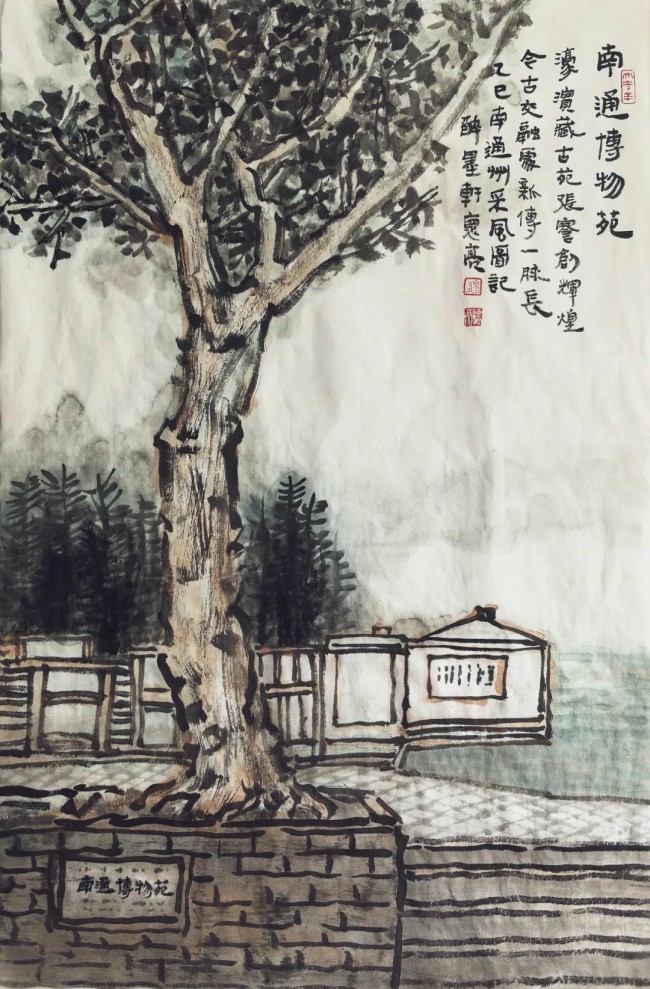 南通博物苑
濠濱藏古苑張謇創輝煌
今古交融處新傳一脉長
乙巳南通州采風圖記
醉墨軒
南通博物苑